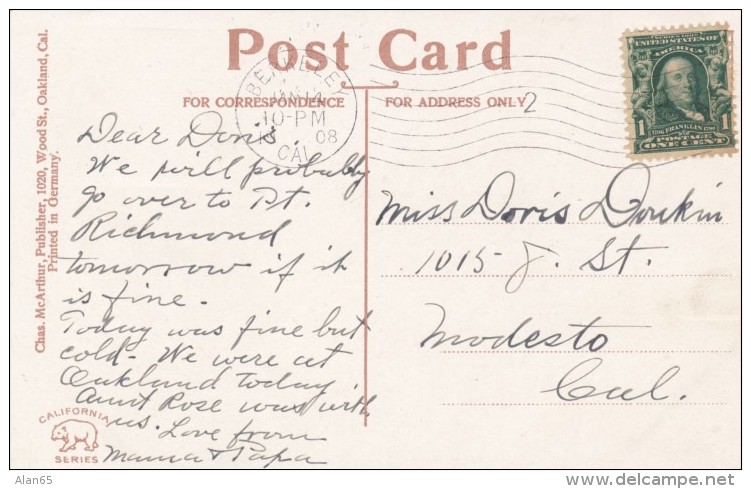 Post Card
FOR CORRESPONDENCE
FOR ADDRESS ONLY
2
BERKELEY
JAN 14
10-PM
08
CAL.
SERIES 1902
UNITED STATES OF
AMERICA
1 1
FRANKLIN
POSTAGE
ONE CENT
Chas. McArthur, Publisher, 1020, Wood St., Oakland, Cal.
Printed in Germany.
Dear Doris
We will probably
go over to Pt.
Richmond
tomorrow if it
is fine.
Today was fine but
cold - We were at
Oakland today
Aunt Rose was with
us. Love from
Mama & Papa
Miss Doris Donkin
1015 J. St.
Modesto
Cal.
CALIFORNIA
SERIES
Alan65
http://www.delcampe.net